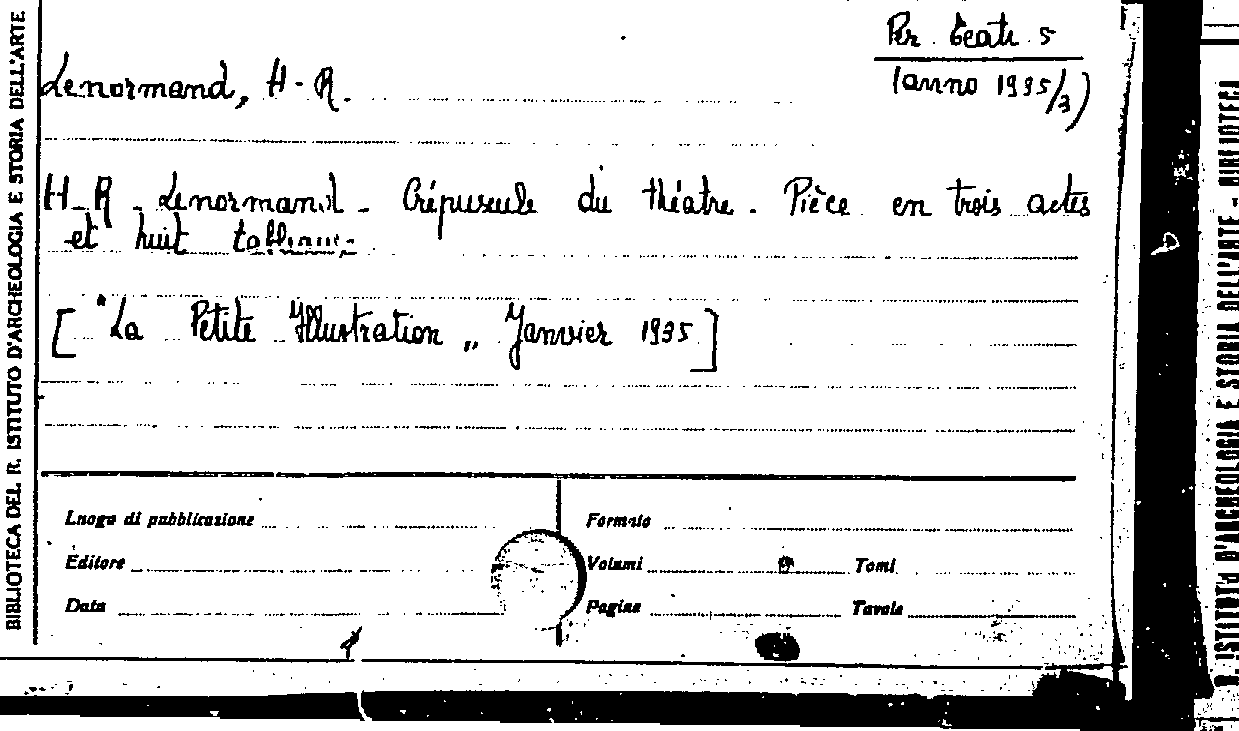 Per. Teatr. 5
(anno 1935/3)
Lenormand, H-R.
H-R. Lenormand - Crépuscule du théatre. Pièce en trois actes
et huit tableaux.
["La Petite Illustration„ Janvier 1935]
Luogo di pubblicazione
Formato
Editore
Volumi
Tomi
Data
Pagine
Tavole
BIBLIOTECA DEL R. ISTITUTO D'ARCHEOLOGIA E STORIA DELL'ARTE
R. ISTITUTO D'ARCHEOLOGIA E STORIA DELL'ARTE - BIBLIOTECA